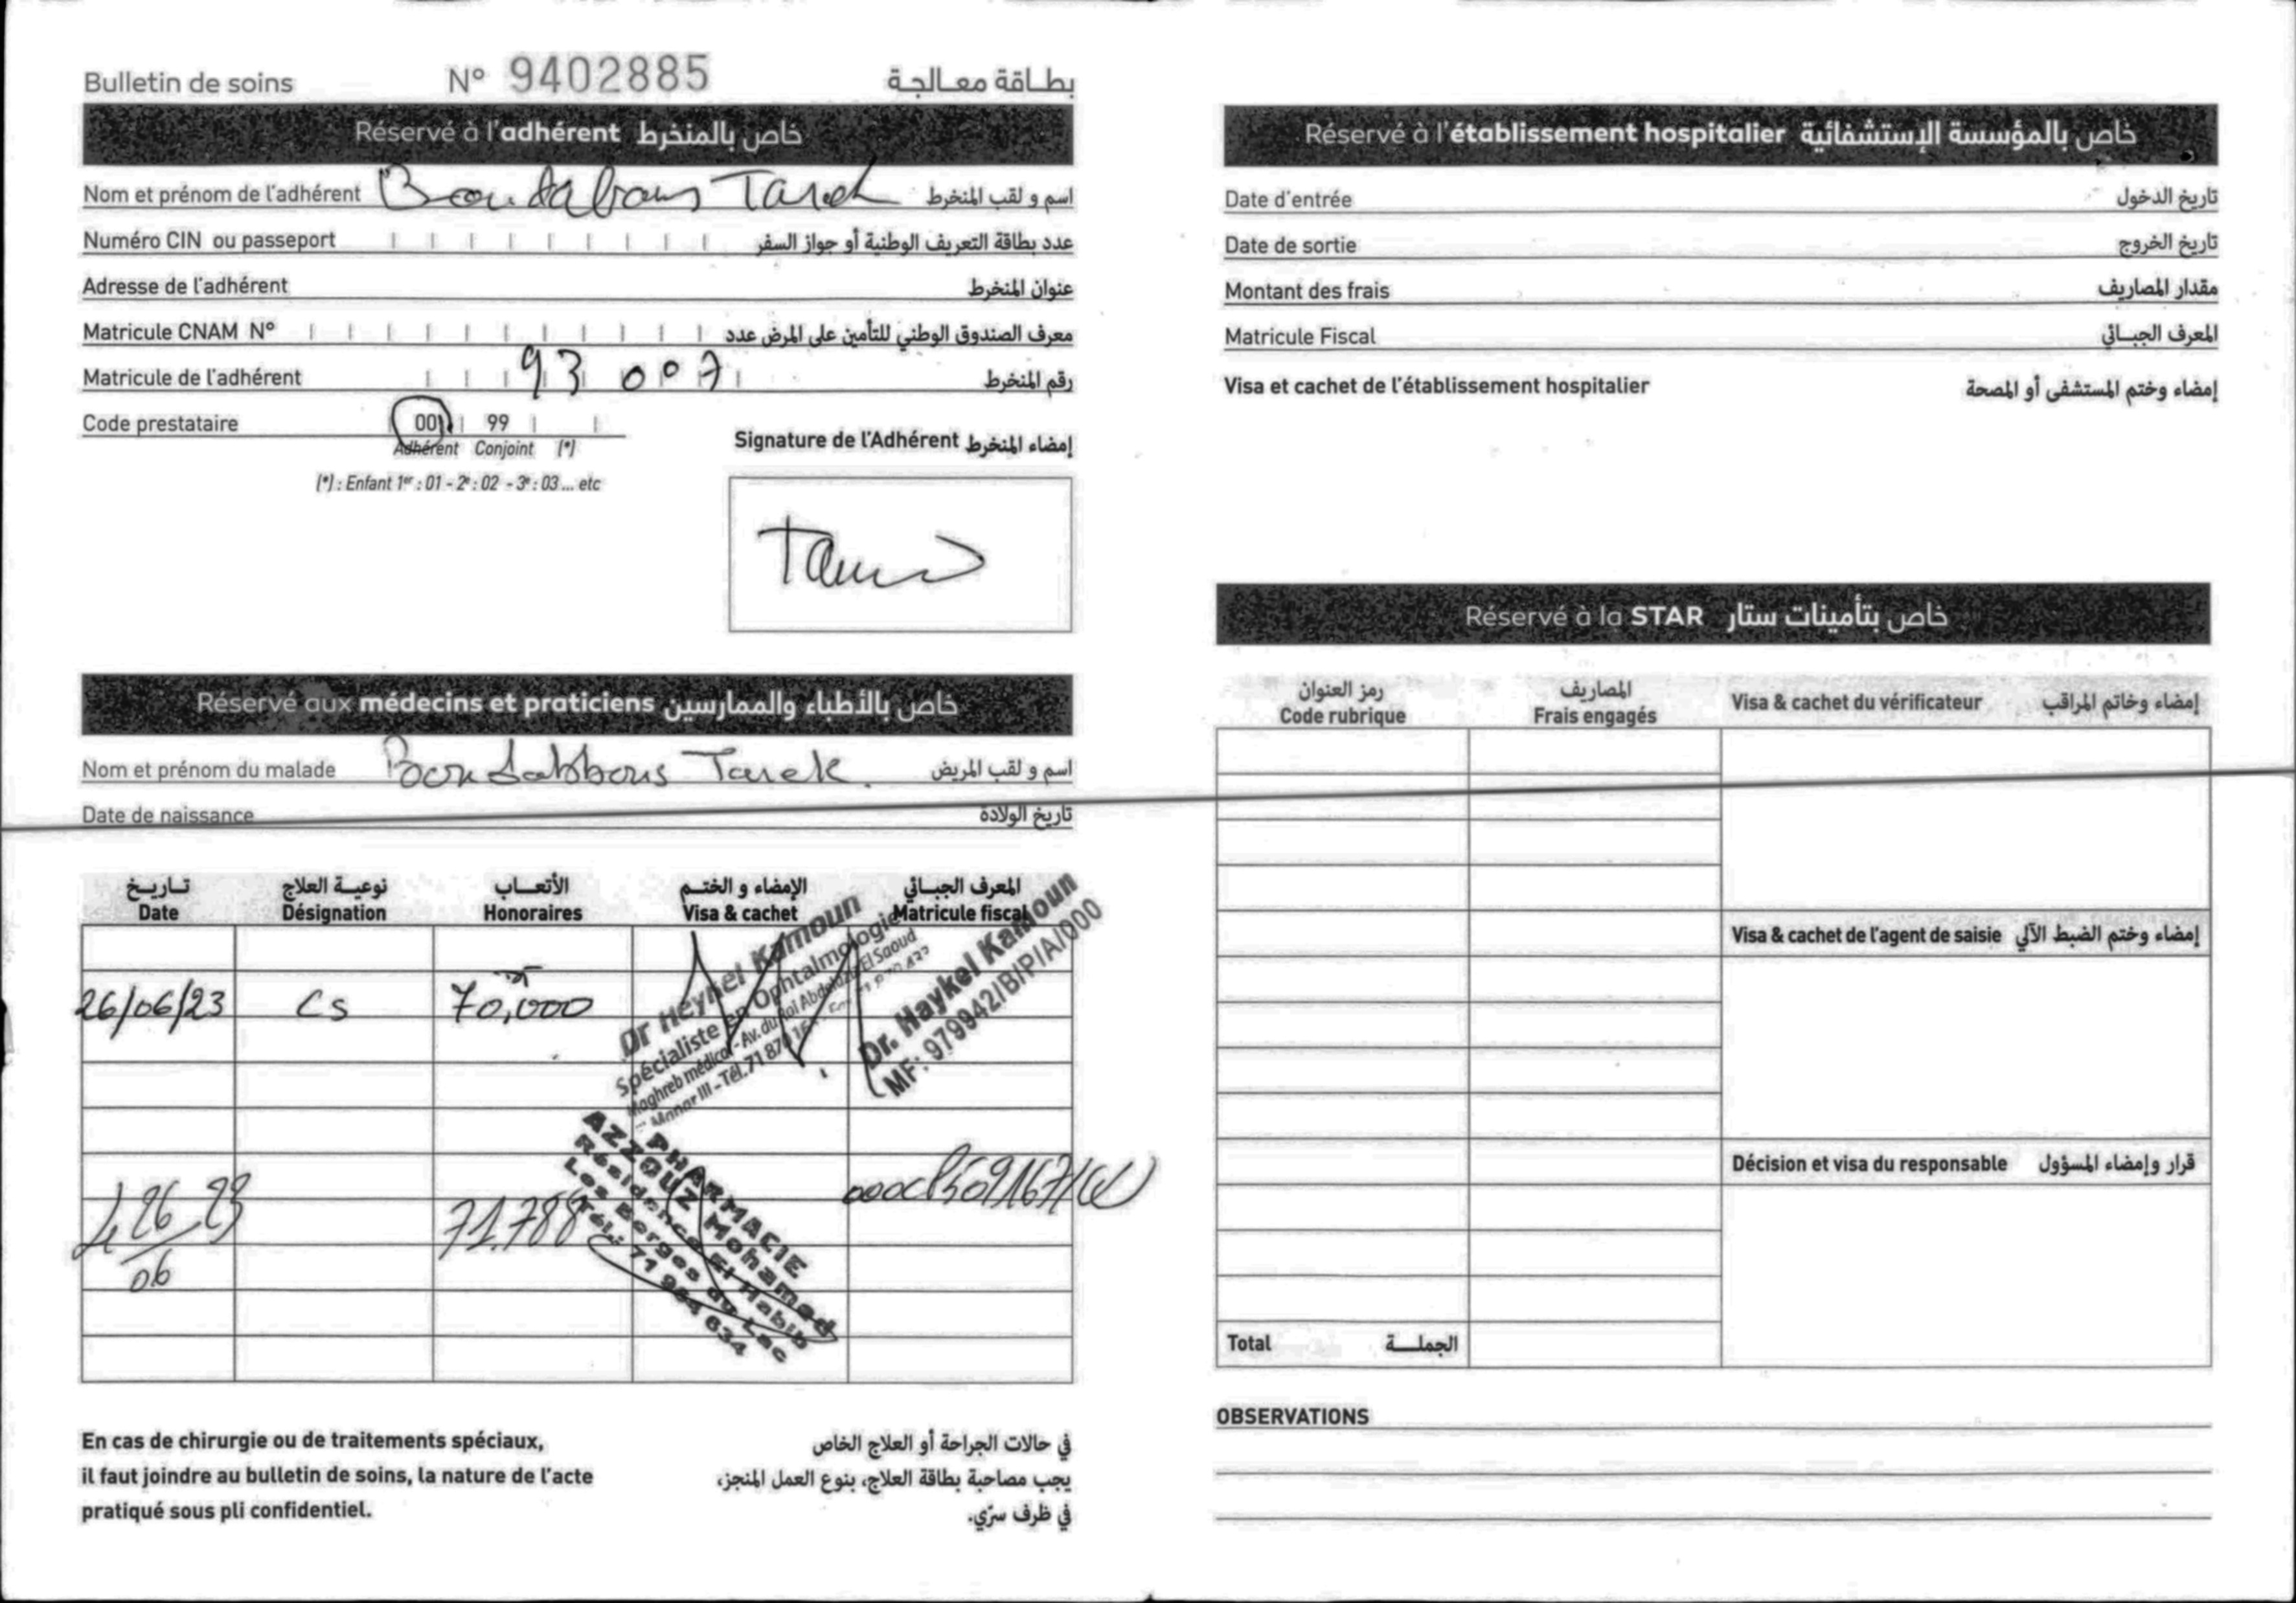 Bulletin de soins N° 9402885 بطاقة معالجة
Réservé à l'adhérent خاص بالمنخرط
Nom et prénom de l'adhérent Boudabbous Tarek اسم و لقب المنخرط
Numéro CIN ou passeport عدد بطاقة التعريف الوطنية أو جواز السفر
Adresse de l'adhérent عنوان المنخرط
Matricule CNAM N° معرف الصندوق الوطني للتأمين على المرض عدد
Matricule de l'adhérent 93 007 رقم المنخرط
Code prestataire 00 99
Adhérent Conjoint (*)
(*) : Enfant 1er : 01 - 2e : 02 - 3e : 03 ... etc
Signature de l'Adhérent إمضاء المنخرط
Réservé aux médecins et praticiens خاص بالأطباء والممارسين
Nom et prénom du malade Boudabbous Tarek اسم و لقب المريض
Date de naissance تاريخ الولادة
تاريخ نوعية العلاج الأتعاب الإمضاء و الختم المعرف الجبائي
Date Désignation Honoraires Visa & cachet Matricule fiscal
26/06/23 Cs 70,000
Dr Heykel Kamoun
Spécialiste en Ophtalmologie
Maghreb médical - Av. du Roi Abdelaziz El Saoud
Manar III - Tél. 71 870 16
Dr. Haykel Kamoun
MF: 979942/B/P/A/000
26 23
06
71.788
PHARMACIE
AZZOUZ Mohamed
Résidence El Habib
Les Berges du Lac
Tél.: 71 964 634
En cas de chirurgie ou de traitements spéciaux,
il faut joindre au bulletin de soins, la nature de l'acte
pratiqué sous pli confidentiel.
في حالات الجراحة أو العلاج الخاص
يجب مصاحبة بطاقة العلاج، بنوع العمل المنجز،
في ظرف سرّي.
Réservé à l'établissement hospitalier خاص بالمؤسسة الإستشفائية
Date d'entrée تاريخ الدخول
Date de sortie تاريخ الخروج
Montant des frais مقدار المصاريف
Matricule Fiscal المعرف الجبائي
Visa et cachet de l'établissement hospitalier إمضاء وختم المستشفى أو المصحة
Réservé à la STAR خاص بتأمينات ستار
رمز العنوان المصاريف
Code rubrique Frais engagés Visa & cachet du vérificateur إمضاء وخاتم المراقب
Visa & cachet de l'agent de saisie إمضاء وختم الضبط الآلي
Décision et visa du responsable قرار وإمضاء المسؤول
Total الجملة
OBSERVATIONS